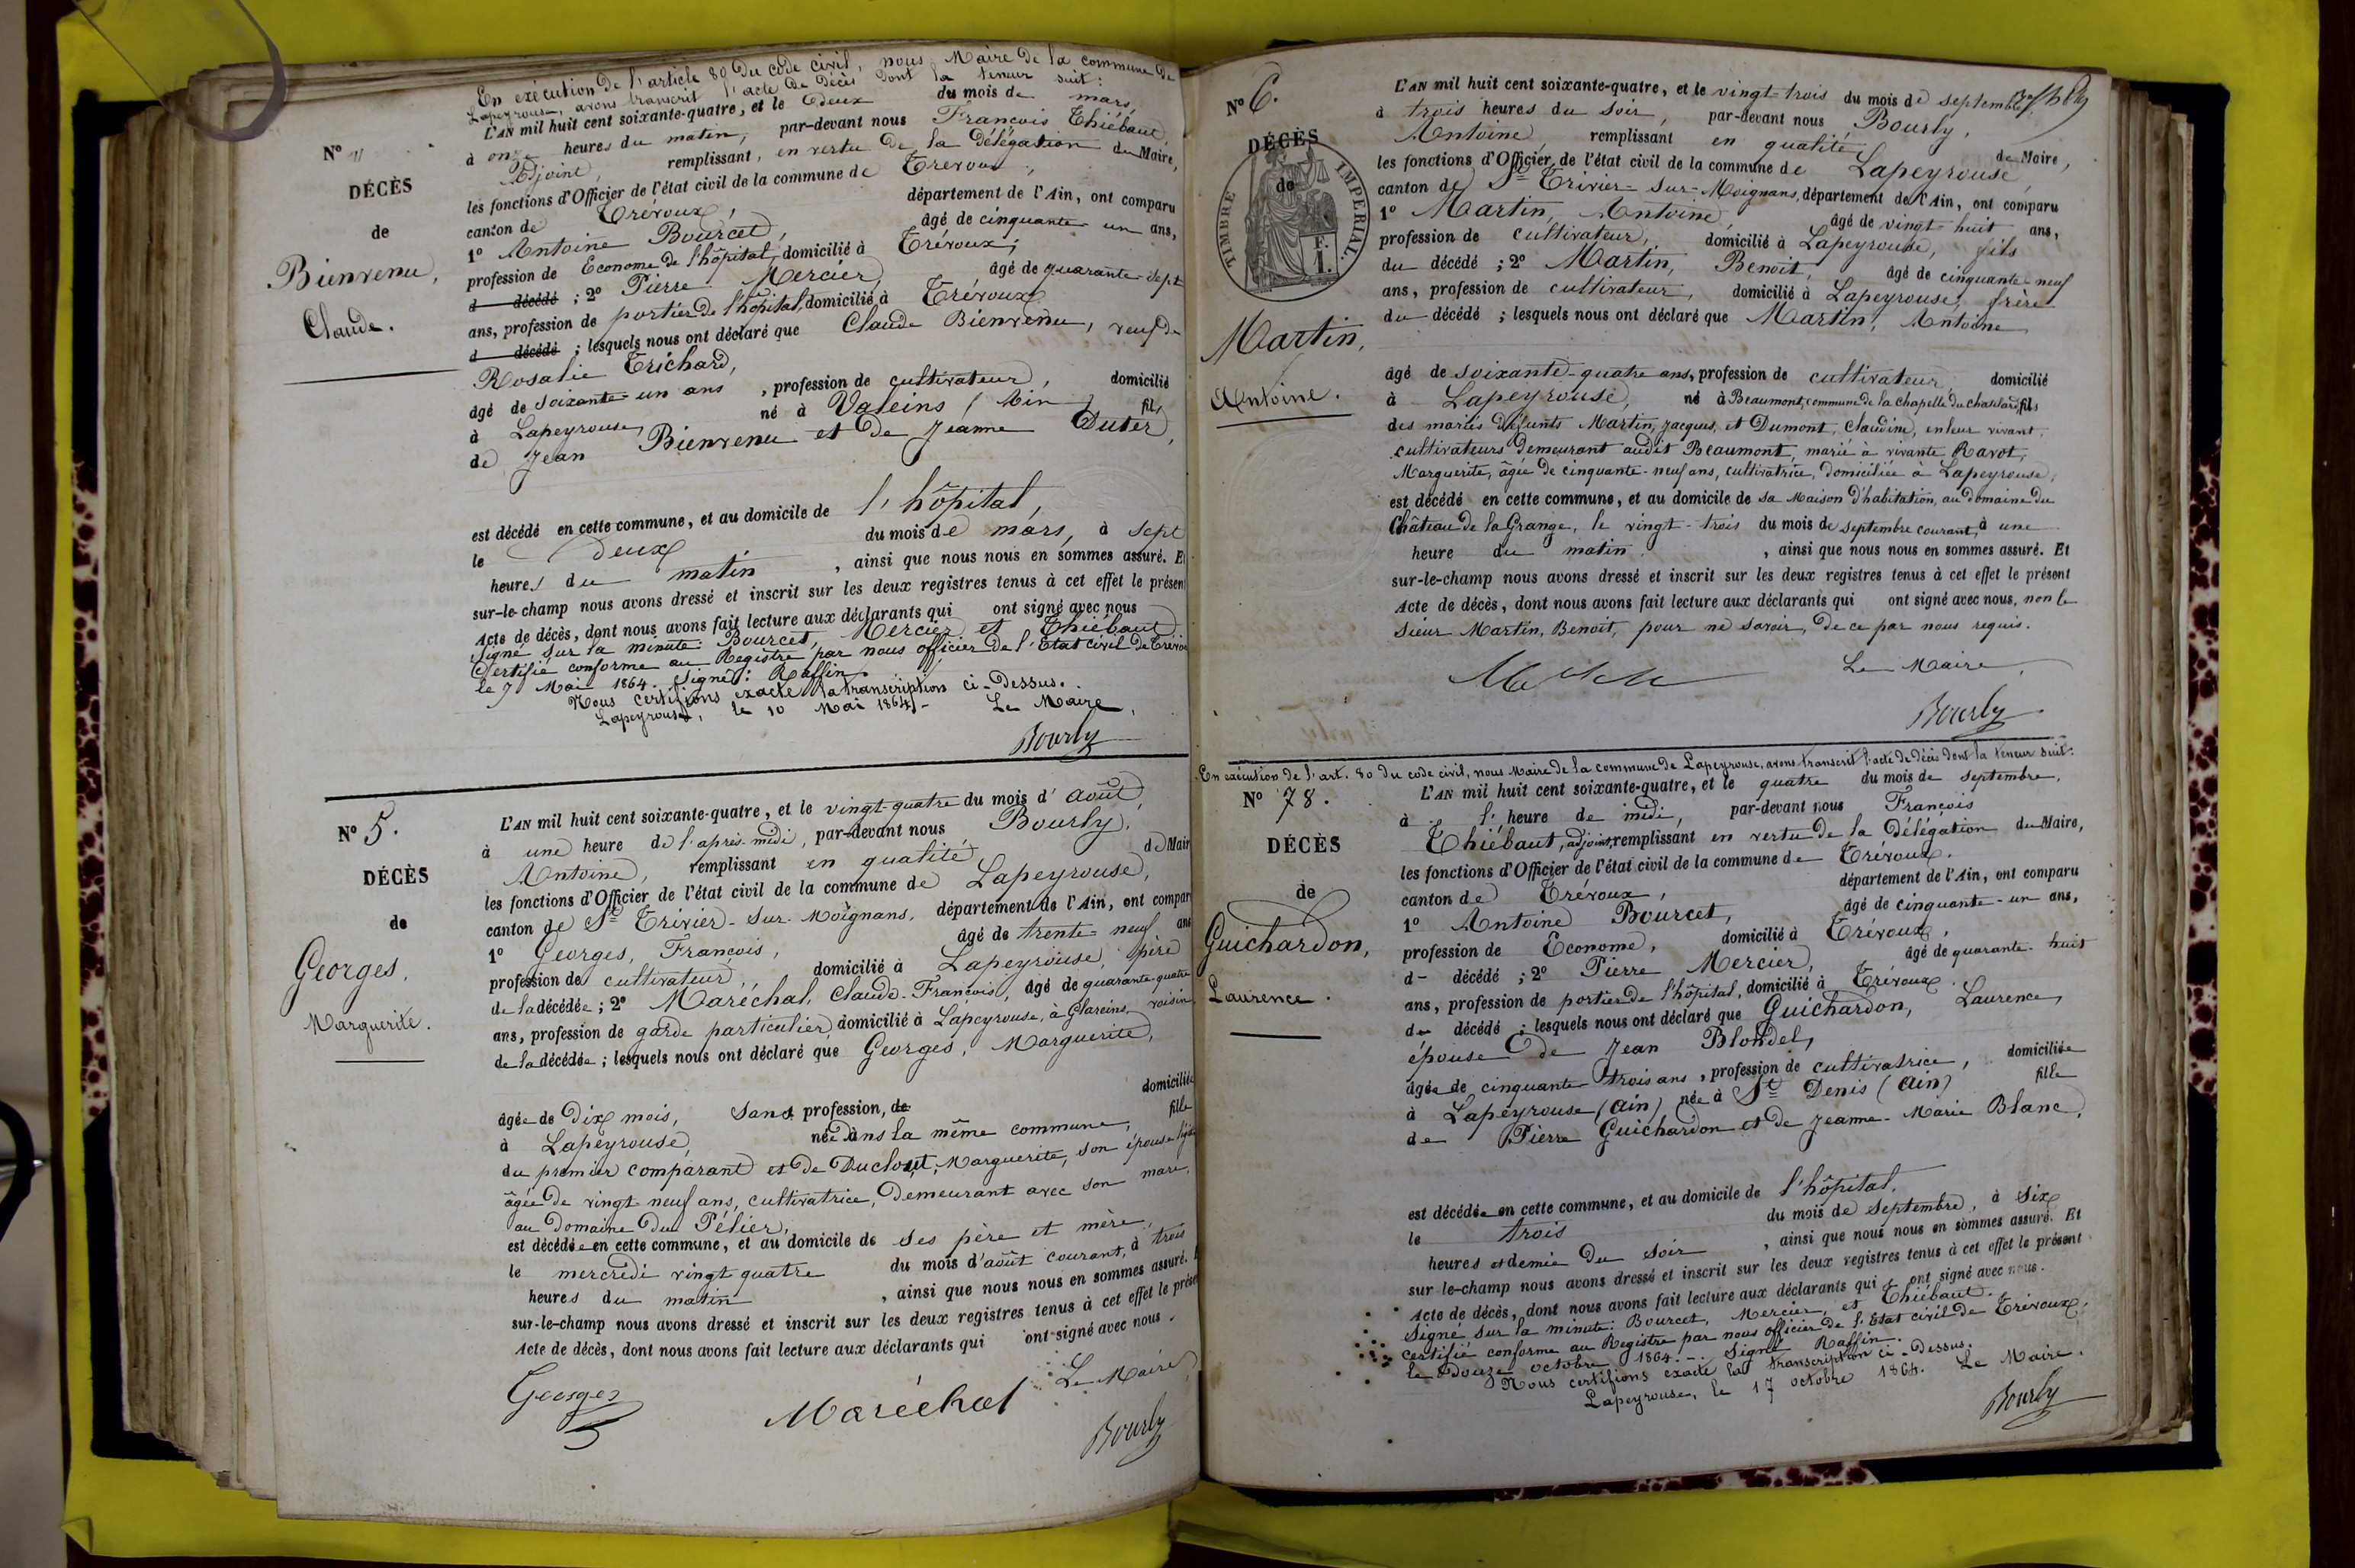 En exécution de l'article 80 du code civil, nous Maire de la commune de
Lapeyrouse, avons transcrit l'acte de décès dont la teneur suit:
L'AN mil huit cent soixante-quatre, et le deux du mois de mars,
à onze heures du matin, par-devant nous François Thiébaut,
Adjoint, remplissant, en vertu de la délégation du Maire,
les fonctions d'Officier de l'état civil de la commune de Trévoux,
canton de Trévoux, département de l'Ain, ont comparu
1º Antoine Bourcet, âgé de cinquante-un ans,
profession de Econome de l'hôpital, domicilié à Trévoux;
d décédé ; 2º Pierre Mercier, âgé de quarante-sept
ans, profession de portier de l'hôpital, domicilié à Trévoux
d décédé ; lesquels nous ont déclaré que Claude Bienvenu, veuf de
Rosalie Trichard,
âgé de soixante-un ans, profession de cultivateur, domicilié
à Lapeyrouse, né à Valeins (Ain) fils
de Jean Bienvenu et de Jeanne Duter,
est décédé en cette commune, et au domicile de l'hôpital,
le deux du mois de mars, à sept
heures du matin, ainsi que nous nous en sommes assuré. Et
sur-le-champ nous avons dressé et inscrit sur les deux registres tenus à cet effet le présent
Acte de décès, dont nous avons fait lecture aux déclarants qui ont signé avec nous
Signé sur la minute: Bourcet, Mercier et Thiébaut
Certifié conforme au Registre par nous officier de l'Etat civil de Trévoux
le 7 Mai 1864. Signé: Raffin.
Nous certifions exacte la transcription ci-dessus.
Lapeyrouse, le 10 Mai 1864 - Le Maire,
Bourly
Nº
DÉCÈS
de
Bienvenu,
Claude.
Nº 5.
DÉCÈS
de
Georges,
Marguerite.
L'AN mil huit cent soixante-quatre, et le vingt-quatre du mois d'août,
à une heure de l'après-midi, par-devant nous Bourly,
Antoine, remplissant en qualité de Mair
les fonctions d'Officier de l'état civil de la commune de Lapeyrouse,
canton de St Trivier-sur-Moignans, département de l'Ain, ont compar
1º Georges, François, âgé de trente-neuf ans
profession de cultivateur, domicilié à Lapeyrouse, père
de la décédée ; 2º Maréchal, Claude-François, âgé de quarante-quatre
ans, profession de garde particulier domicilié à Lapeyrouse, à Glareins, voisin
de la décédée ; lesquels nous ont déclaré que Georges, Marguerite,
âgée de dix mois, sans profession, de domiciliée
à Lapeyrouse, née dans la même commune, fille
du premier comparant et de Duclout, Marguerite, son épouse
âgée de vingt neuf ans, cultivatrice, demeurant avec son mari,
au domaine du Pélier,
est décédée en cette commune, et au domicile de ses père et mère,
le mercredi vingt quatre du mois d'août courant, à trois
heures du matin, ainsi que nous nous en sommes assuré.
sur-le-champ nous avons dressé et inscrit sur les deux registres tenus à cet effet le prése
Acte de décès, dont nous avons fait lecture aux déclarants qui ont signé avec nous.
Georges
Maréchal
Le Maire
Bourly
Nº 6.
DÉCÈS
de
TIMBRE IMPERIAL.
F.
1.
Martin,
Antoine.
L'AN mil huit cent soixante-quatre, et le vingt-trois du mois de septembre,
à trois heures du soir, par-devant nous Bourly,
Antoine, remplissant en qualité de Maire,
les fonctions d'Officier de l'état civil de la commune de Lapeyrouse,
canton de St Trivier-sur-Moignans, département de l'Ain, ont comparu
1º Martin, Antoine, âgé de vingt-huit ans,
profession de cultivateur, domicilié à Lapeyrouse, fils
du décédé ; 2º Martin, Benoit, âgé de cinquante-neuf
ans, profession de cultivateur, domicilié à Lapeyrouse, frère
du décédé ; lesquels nous ont déclaré que Martin, Antoine
âgé de soixante-quatre ans, profession de cultivateur, domicilié
à Lapeyrouse, né à Beaumont, commune de la Chapelle du Chatelard, fils
des mariés défunts Martin, Jacques, et Dumont, Claudine, en leur vivant,
cultivateurs demeurant audit Beaumont, marié à vivante Ravot,
Marguerite, âgée de cinquante-neuf ans, cultivatrice, domiciliée à Lapeyrouse,
est décédé en cette commune, et au domicile de sa Maison d'habitation, au domaine du
Château de la Grange, le vingt-trois du mois de septembre courant, à une
heure du matin, ainsi que nous nous en sommes assuré. Et
sur-le-champ nous avons dressé et inscrit sur les deux registres tenus à cet effet le présent
Acte de décès, dont nous avons fait lecture aux déclarants qui ont signé avec nous, non le
sieur Martin, Benoit, pour ne savoir, de ce par nous requis.
Le Maire,
Bourly
En exécution de l'art. 80 du code civil, nous Maire de la commune de Lapeyrouse, avons transcrit l'acte de décès dont la teneur suit:
Nº 78.
DÉCÈS
de
Guichardon,
Laurence.
L'AN mil huit cent soixante-quatre, et le quatre du mois de septembre,
à l'heure de midi, par-devant nous François
Thiébaut, adjoint, remplissant en vertu de la délégation du Maire,
les fonctions d'Officier de l'état civil de la commune de Trévoux.
canton de Trévoux, département de l'Ain, ont comparu
1º Antoine Bourcet, âgé de cinquante-un ans,
profession de Econome, domicilié à Trévoux,
d- décédé ; 2º Pierre Mercier, âgé de quarante-huit
ans, profession de portier de l'hôpital, domicilié à Trévoux.
d- décédé ; lesquels nous ont déclaré que Guichardon, Laurence,
épouse de Jean Blondel,
âgée de cinquante-trois ans, profession de cultivatrice, domiciliée
à Lapeyrouse (Ain) née à St Denis (Ain) fille
de Pierre Guichardon et de Jeanne-Marie Blanc,
est décédée en cette commune, et au domicile de l'hôpital,
le trois du mois de septembre, à six
heures et demie du soir, ainsi que nous nous en sommes assuré. Et
sur-le-champ nous avons dressé et inscrit sur les deux registres tenus à cet effet le présent
Acte de décès, dont nous avons fait lecture aux déclarants qui ont signé avec nous.
Signé sur la minute: Bourcet, Mercier, et Thiébaut.
Certifié conforme au Registre par nous officier de l'Etat civil de Trévoux,
le douze octobre 1864. - Signé Raffin.
Nous certifions exacte la transcription ci-dessus.
Lapeyrouse, le 17 octobre 1864. Le Maire.
Bourly